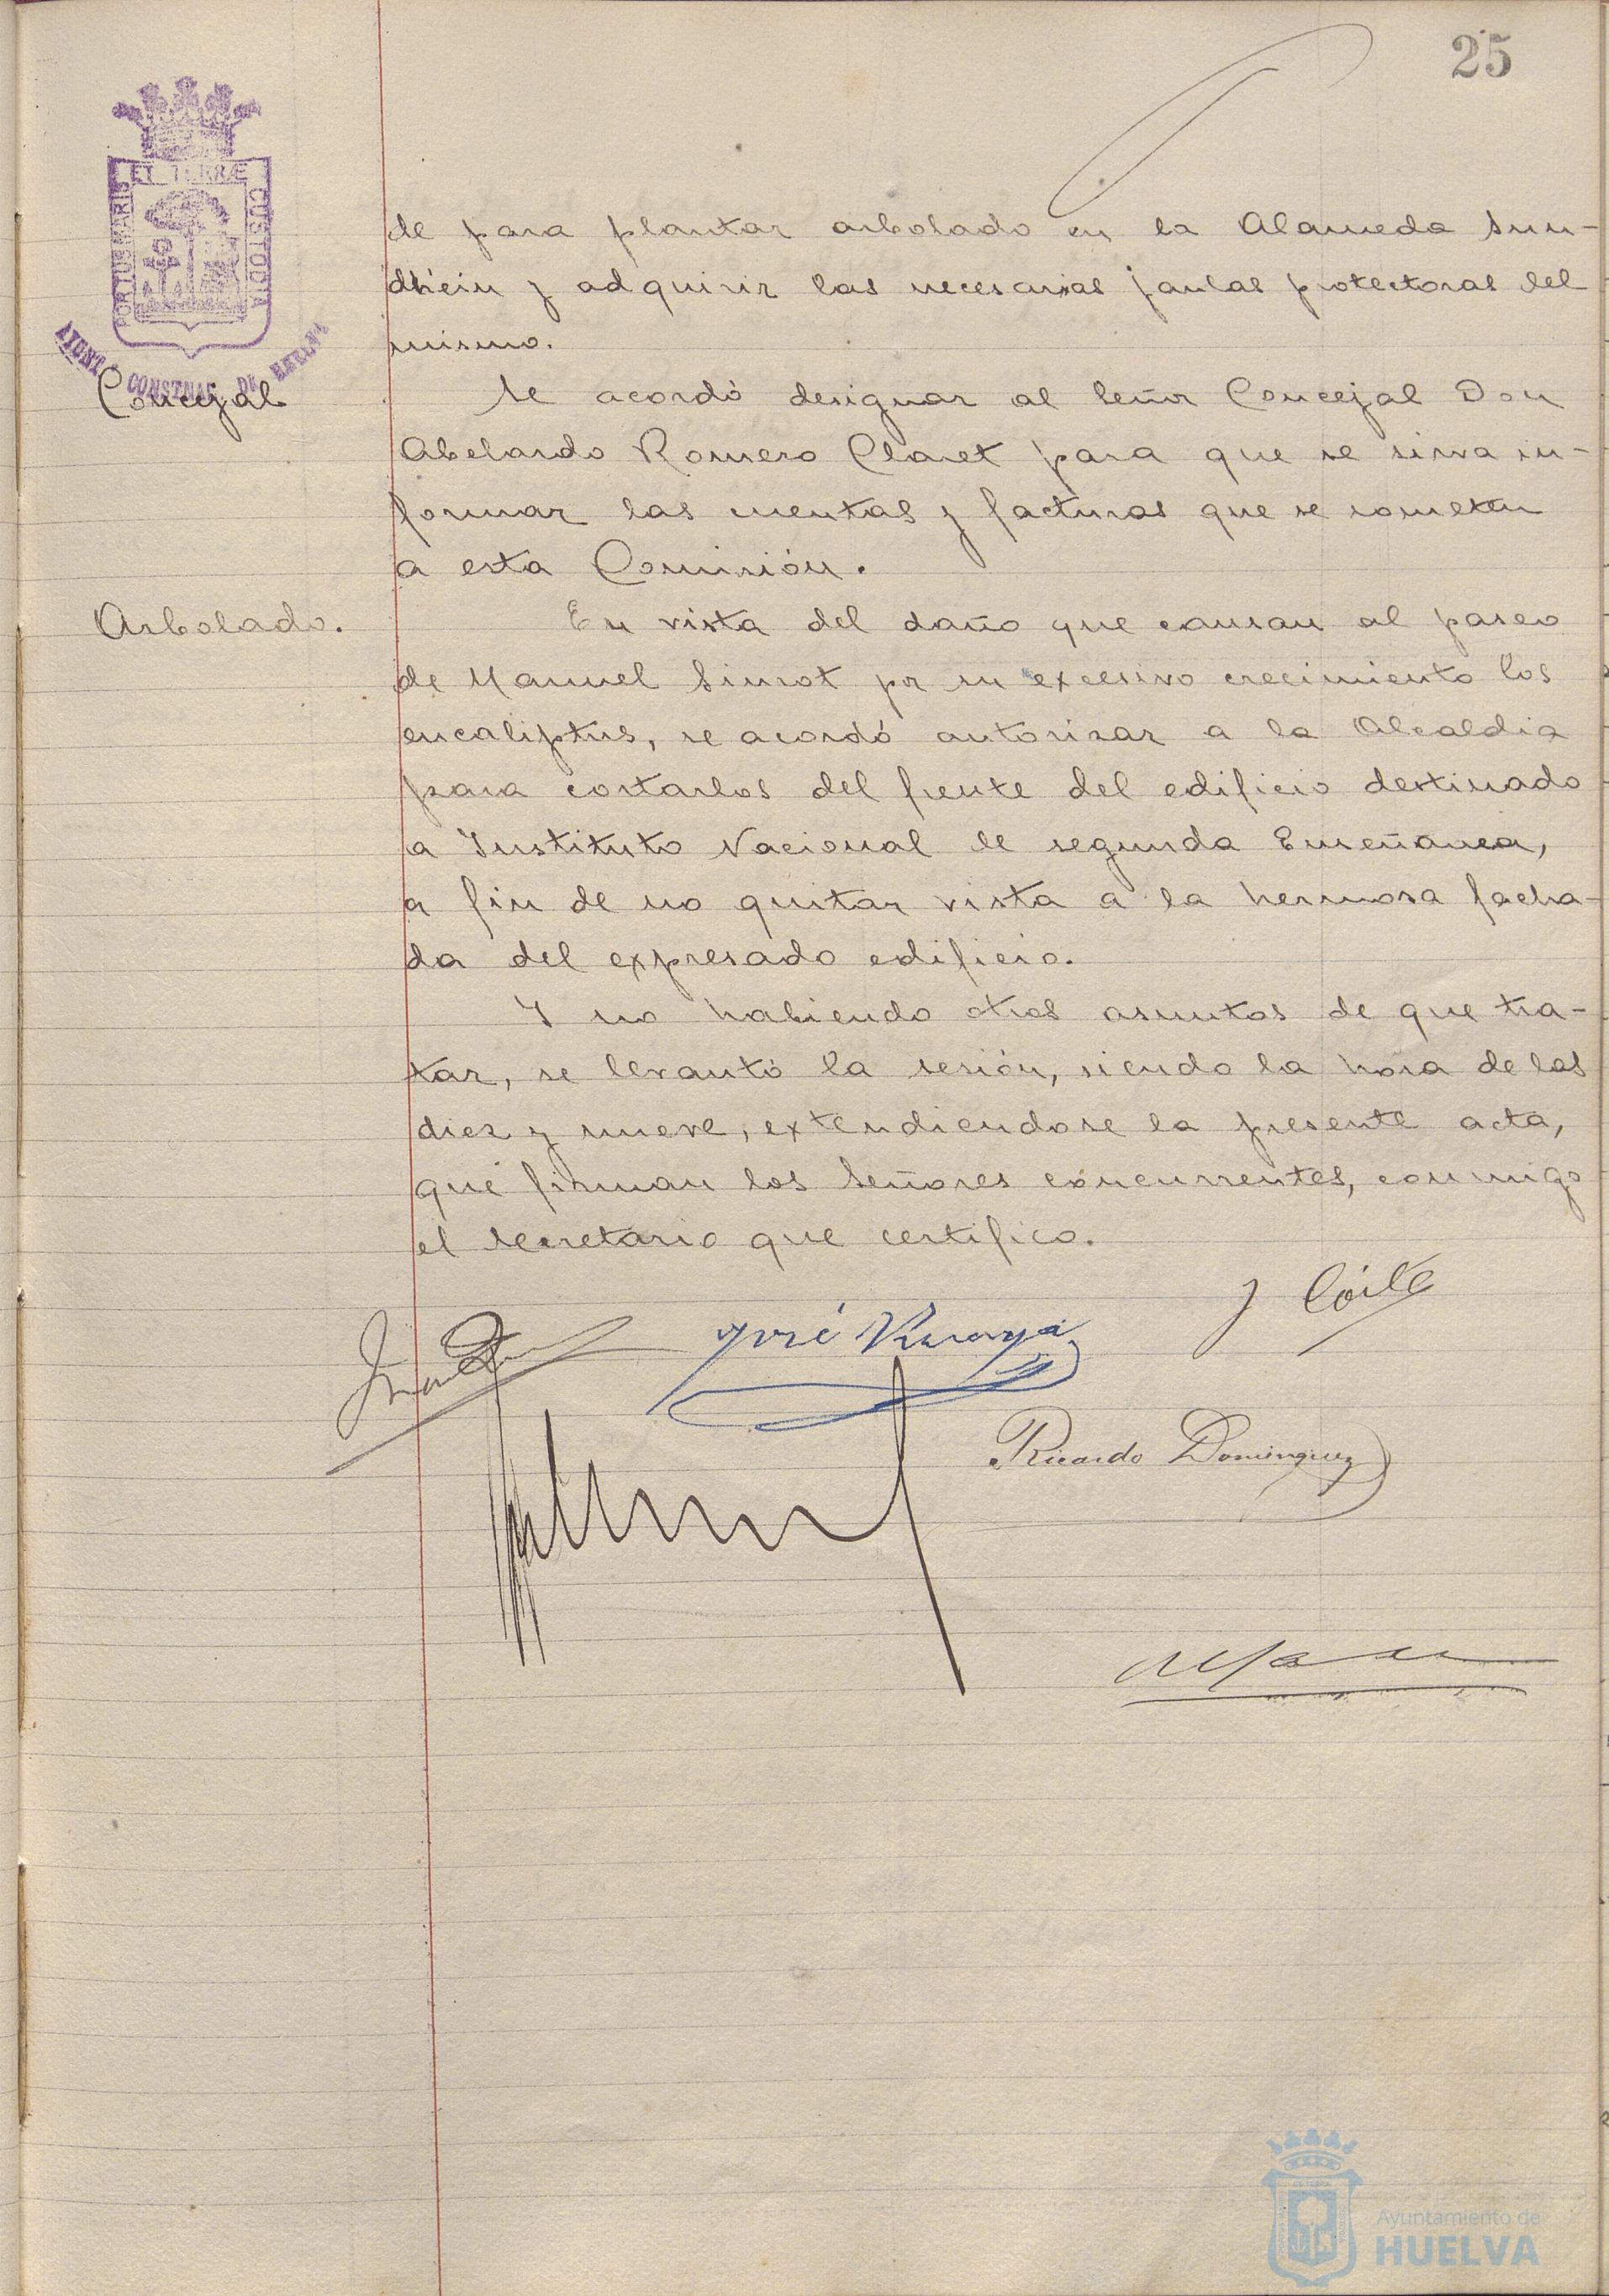 25
PORTUS MARIS
ET TERRÆ
CUSTODIA
AYUNT. CONSTNAL DE HUELVA
de para plantar arbolado en la Alameda Sun-
dhéin y adquirir las necesarias jaulas protectoras del
mismo.
Concejal
Se acordó designar al Señor Concejal Don
Abelardo Romero Claret para que se sirva in-
formar las cuentas y facturas que se someten
a esta Comisión.
Arbolado.
En vista del daño que causan al paseo
de Manuel Siurot por su excesivo crecimiento los
eucaliptus, se acordó autorizar a la Alcaldia
para cortarlos del frente del edificio destinado
a Instituto Nacional de segunda Enseñanza,
a fin de no quitar vista a la hermosa facha-
da del expresado edificio.
Y no habiendo otros asuntos de que tra-
tar, se levantó la sesión, siendo la hora de las
diez y nueve, extendiendose la presente acta,
que firman los Señores concurrentes, conmigo
el secretario que certifico.
José
Ricardo Dominguez
Ayuntamiento de
HUELVA